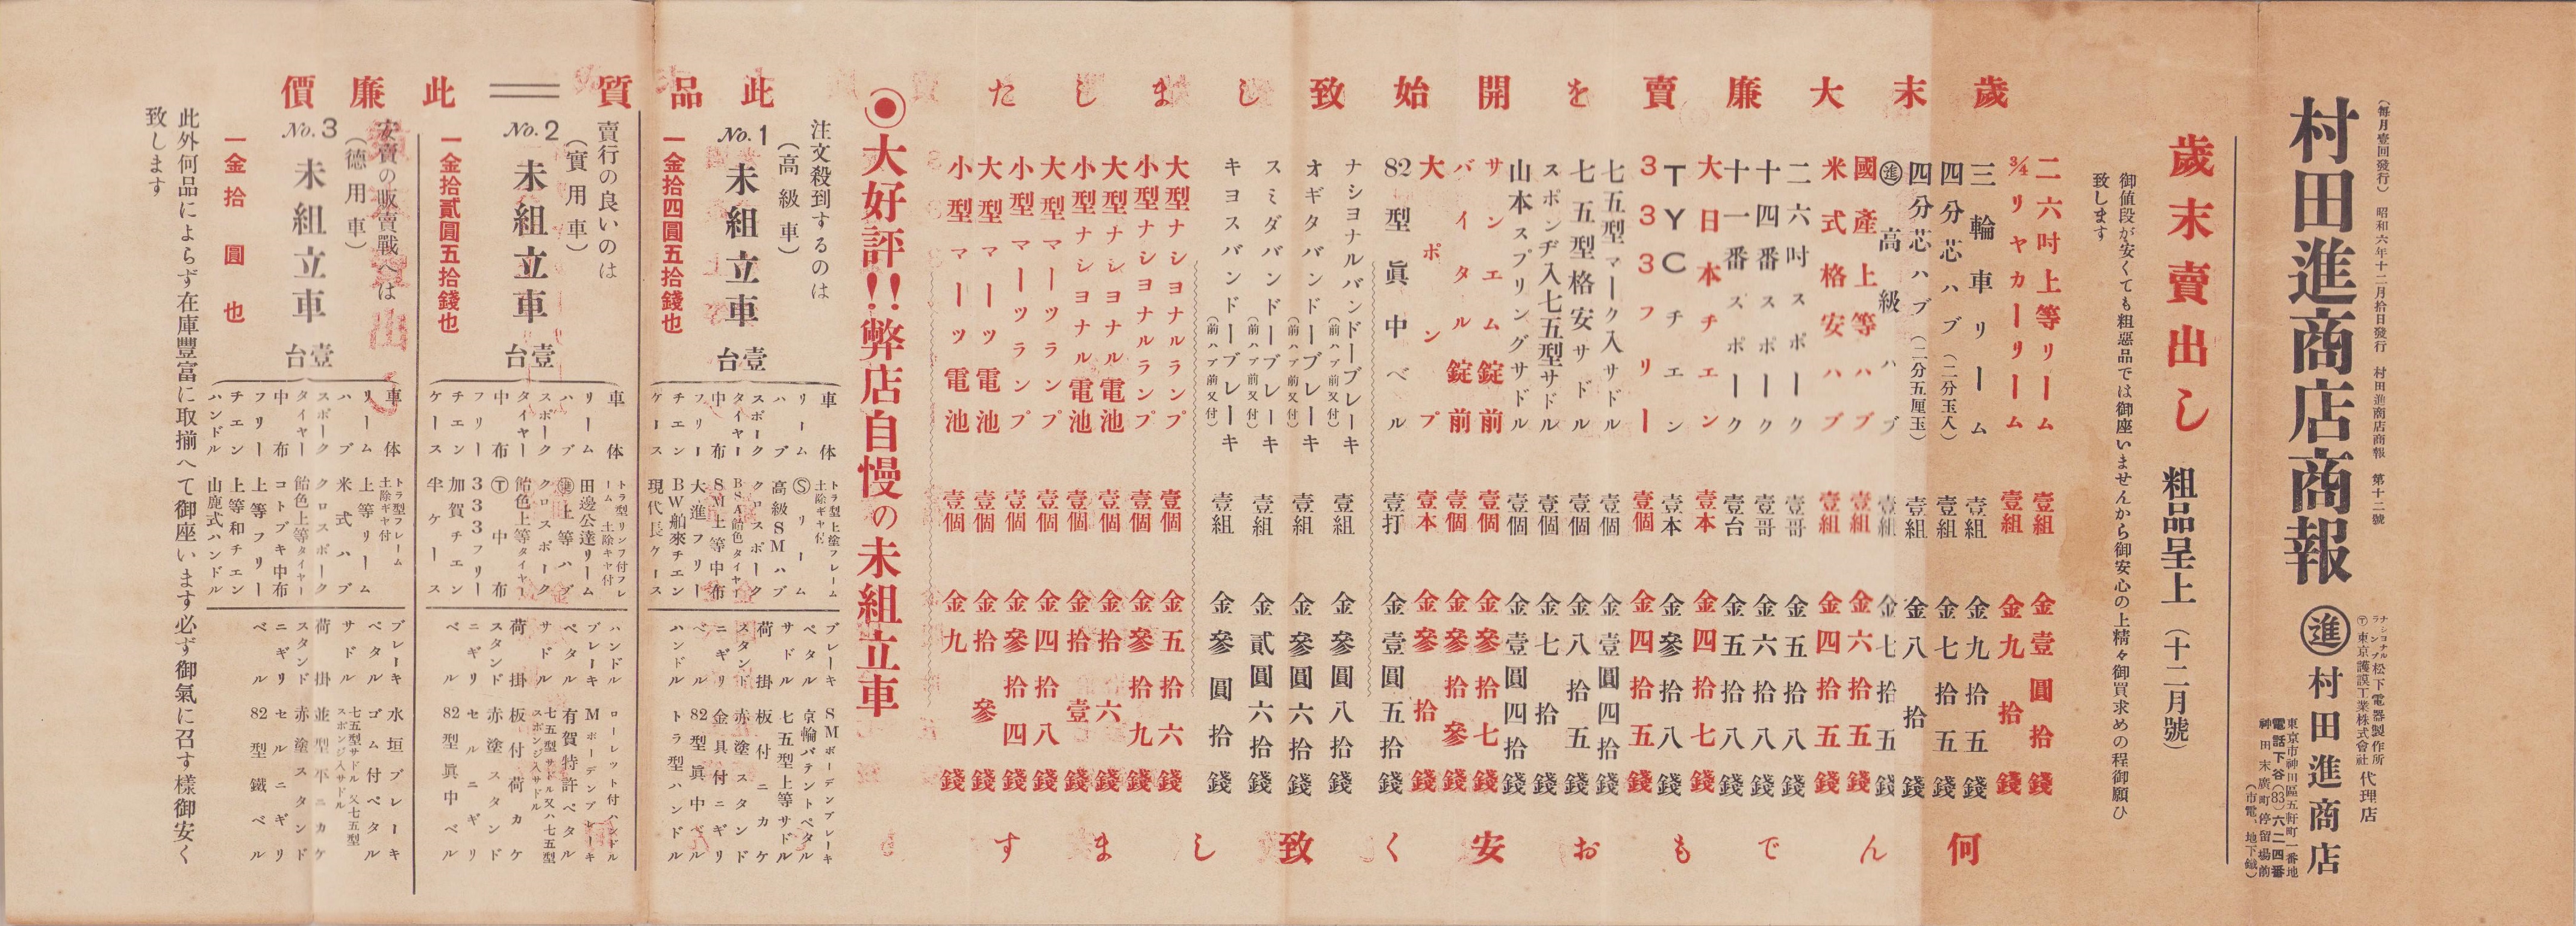 (毎月壹回發行) 昭和六年十二月拾日發行 村田進商店商報 第十二號
村田進商店商報
ナショナルランプ 松下電器製作所
Ⓣ 東京護謨工業株式會社 代理店
進 村田進商店
東京市神田區五軒町一番地
電話下谷(83)六二四番
神田末廣町停留場前
(市電、地下鐵)
歲末賣出し 粗品呈上 (十二月號)
御値段が安くても粗惡品では御座いませんから御安心の上精々御買求めの程御願ひ
致します
歲末大廉賣を開始致しました
二六吋上等リーム 壹組 金壹圓拾錢
¾リヤカーリーム 壹組 金九拾錢
三輪車リーム 壹組 金九拾五錢
四分芯ハブ(二分玉入) 壹組 金七拾五錢
四分芯ハブ(二分五厘玉) 壹組 金八拾錢
進高級ハブ 壹組 金七拾五錢
國產上等ハブ 壹組 金六拾五錢
米式格安ハブ 壹組 金四拾五錢
二六吋スポーク 壹哥 金五拾八錢
十四番スポーク 壹哥 金六拾八錢
十一番スポーク 壹台 金五拾八錢
大日本チエン 壹本 金四拾七錢
TYCチエン 壹本 金參拾八錢
333フリー 壹個 金四拾五錢
七五型マーク入サドル 壹個 金壹圓四拾錢
七五型格安サドル 壹個 金八拾五錢
スポンヂ入七五型サドル 壹個 金七拾錢
山本スプリングサドル 壹個 金壹圓四拾錢
サンエム錠前 壹個 金參拾七錢
バイタル錠前 壹個 金參拾參錢
大ポンプ 壹本 金參拾錢
82型眞中ベル 壹打 金壹圓五拾錢
ナショナルバンドーブレーキ(前ハブ前又付) 壹組 金參圓八拾錢
オギタバンドーブレーキ(前ハブ前又付) 壹組 金參圓六拾錢
スミダバンドーブレーキ(前ハブ前又付) 壹組 金貳圓六拾錢
キヨスバンドーブレーキ(前ハブ前又付) 壹組 金參圓拾錢
大型ナショナルランプ 壹個 金五拾六錢
小型ナショナルランプ 壹個 金參拾九錢
大型ナショナル電池 壹個 金拾六錢
小型ナショナル電池 壹個 金拾壹錢
大型マーツランプ 壹個 金四拾八錢
小型マーツランプ 壹個 金參拾四錢
大型マーツ電池 壹個 金拾參錢
小型マーツ電池 壹個 金九錢
何んでもお安く致します
大好評!!弊店自慢の未組立車
此品質══此廉價
注文殺到するのは
(高級車)
No.1 未組立車 壹台
一金拾四圓五拾錢也
車体 トラ型上塗フレーム土除ギヤ付
リーム Ⓢリーム
ハブ 高級SMハブ
スポーク クロスポーク
タイヤー BSA飴色タイヤー
中布 SM上等中布
フリー 大進フリー
チエン BW舶來チエン
ケース 現代長ケース
ブレーキ SMボーデンブレーキ
ペタル 京輪パテントペタル
サドル 七五型上等サドル
荷掛 板付ニカケ
スタンド 赤塗スタンド
ニギリ 金具付ニギリ
ベル 82型眞中ベル
ハンドル トラ型ハンドル
賣行の良いのは
(實用車)
No.2 未組立車 壹台
一金拾貳圓五拾錢也
車体 トラ型リンフ付フレーム 土除キヤ付
リーム 田邊公達リーム
ハブ 進上等ハブ
スポーク クロスポーク
タイヤー 飴色上等タイヤー
中布 Ⓣ中布
フリー 333フリー
チエン 加賀チエン
ケース 半ケース
ハンドル ローレット付ハンドル
ブレーキ Mボーデンブレーキ
ペタル 有賀特許ペタル
サドル 七五型サドル又ハ七五型スポンジ入サドル
荷掛 板付荷カケ
スタンド 赤塗スタンド
ニギリ セルニギリ
ベル 82型眞中ベル
安賣の販賣戰へは
(德用車)
No.3 未組立車 壹台
一金拾圓也
車体 トラ型フレーム土除ギヤ付
リーム 上等リーム
ハブ 米式ハブ
スポーク クロスポーク
タイヤー 飴色上等タイヤー
中布 コトブキ中布
フリー 上等フリー
チエン 上等和チエン
ハンドル 山鹿式ハンドル
ブレーキ 水垣ブレーキ
ペタル ゴム付ペタル
サドル 七五型サドル又七五型スポンジ入サドル
荷掛 並型平ニカケ
スタンド 赤塗スタンド
ニギリ セルニギリ
ベル 82型鐵ベル
此外何品によらず在庫豐富に取揃へて御座います必ず御氣に召す樣御安く
致します